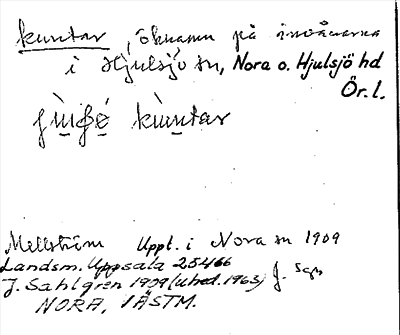 kuntar, öknamn på invånarna
i Hjulsjö sn, Nora o. Hjulsjö hd
Ör. l.
kùntar
Mellström Uppt. i Nora sn 1909
Landsm. Uppsala 25466
J. Sahlgren 1909 (uhed. 1963) J. Sgn
NORA, VÄSTM.